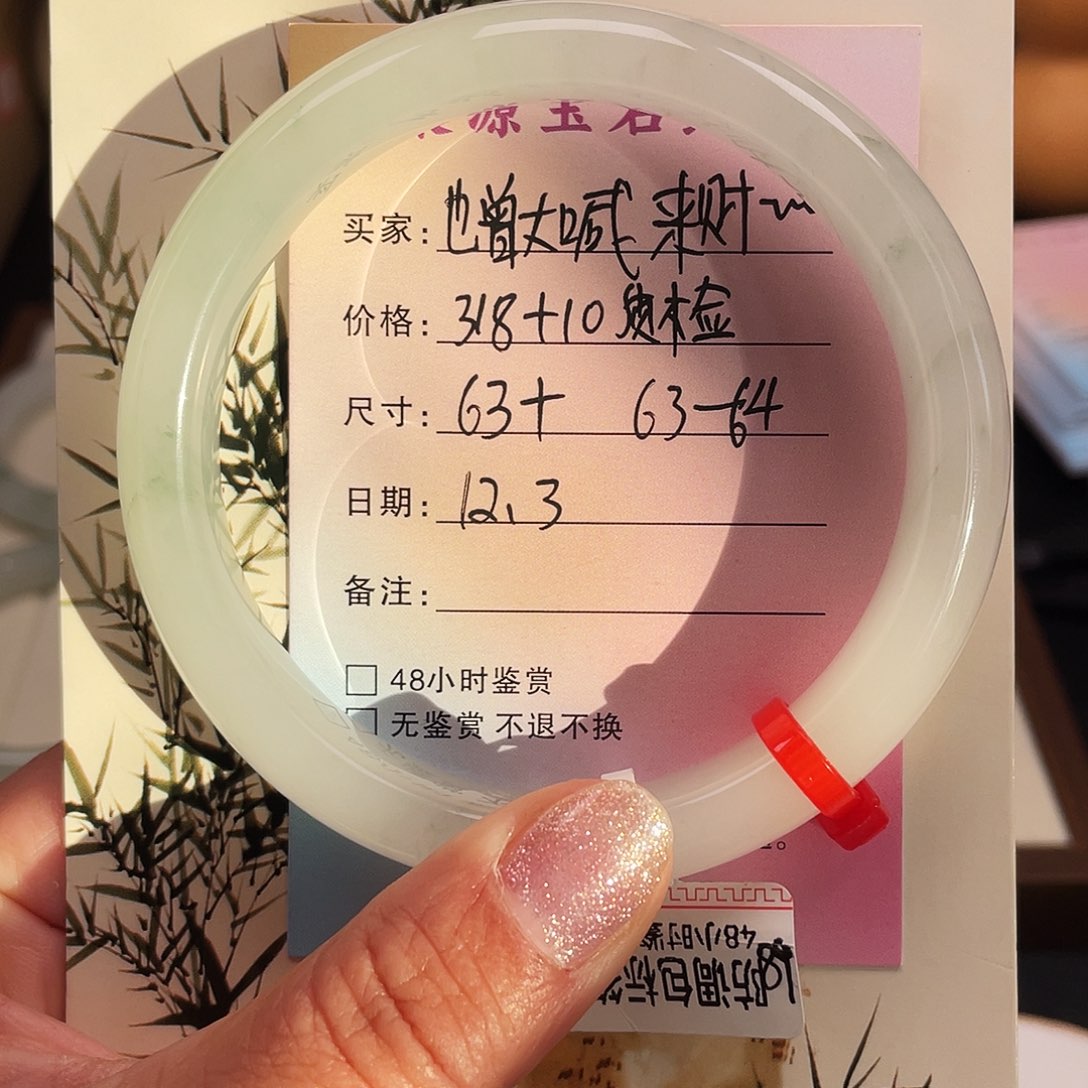 源玉石
买家: 也曾大喊 来财~
价格: 318+10质检
尺寸: 63+ 63-64
日期: 12、3
备注:
□ 48小时鉴赏
□ 无鉴赏 不退不换
48小时鉴
防调包标签